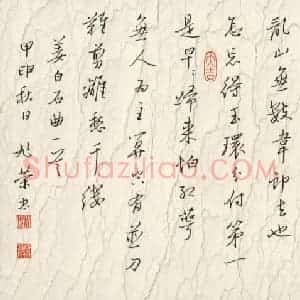 亂山無數韋郎去也
怎忘得玉環分付第一
是早々歸來怕紅萼
無人为主算只有並刀
難剪離愁千縷
姜白石曲一首
甲申秋日
Shufaziliao.com